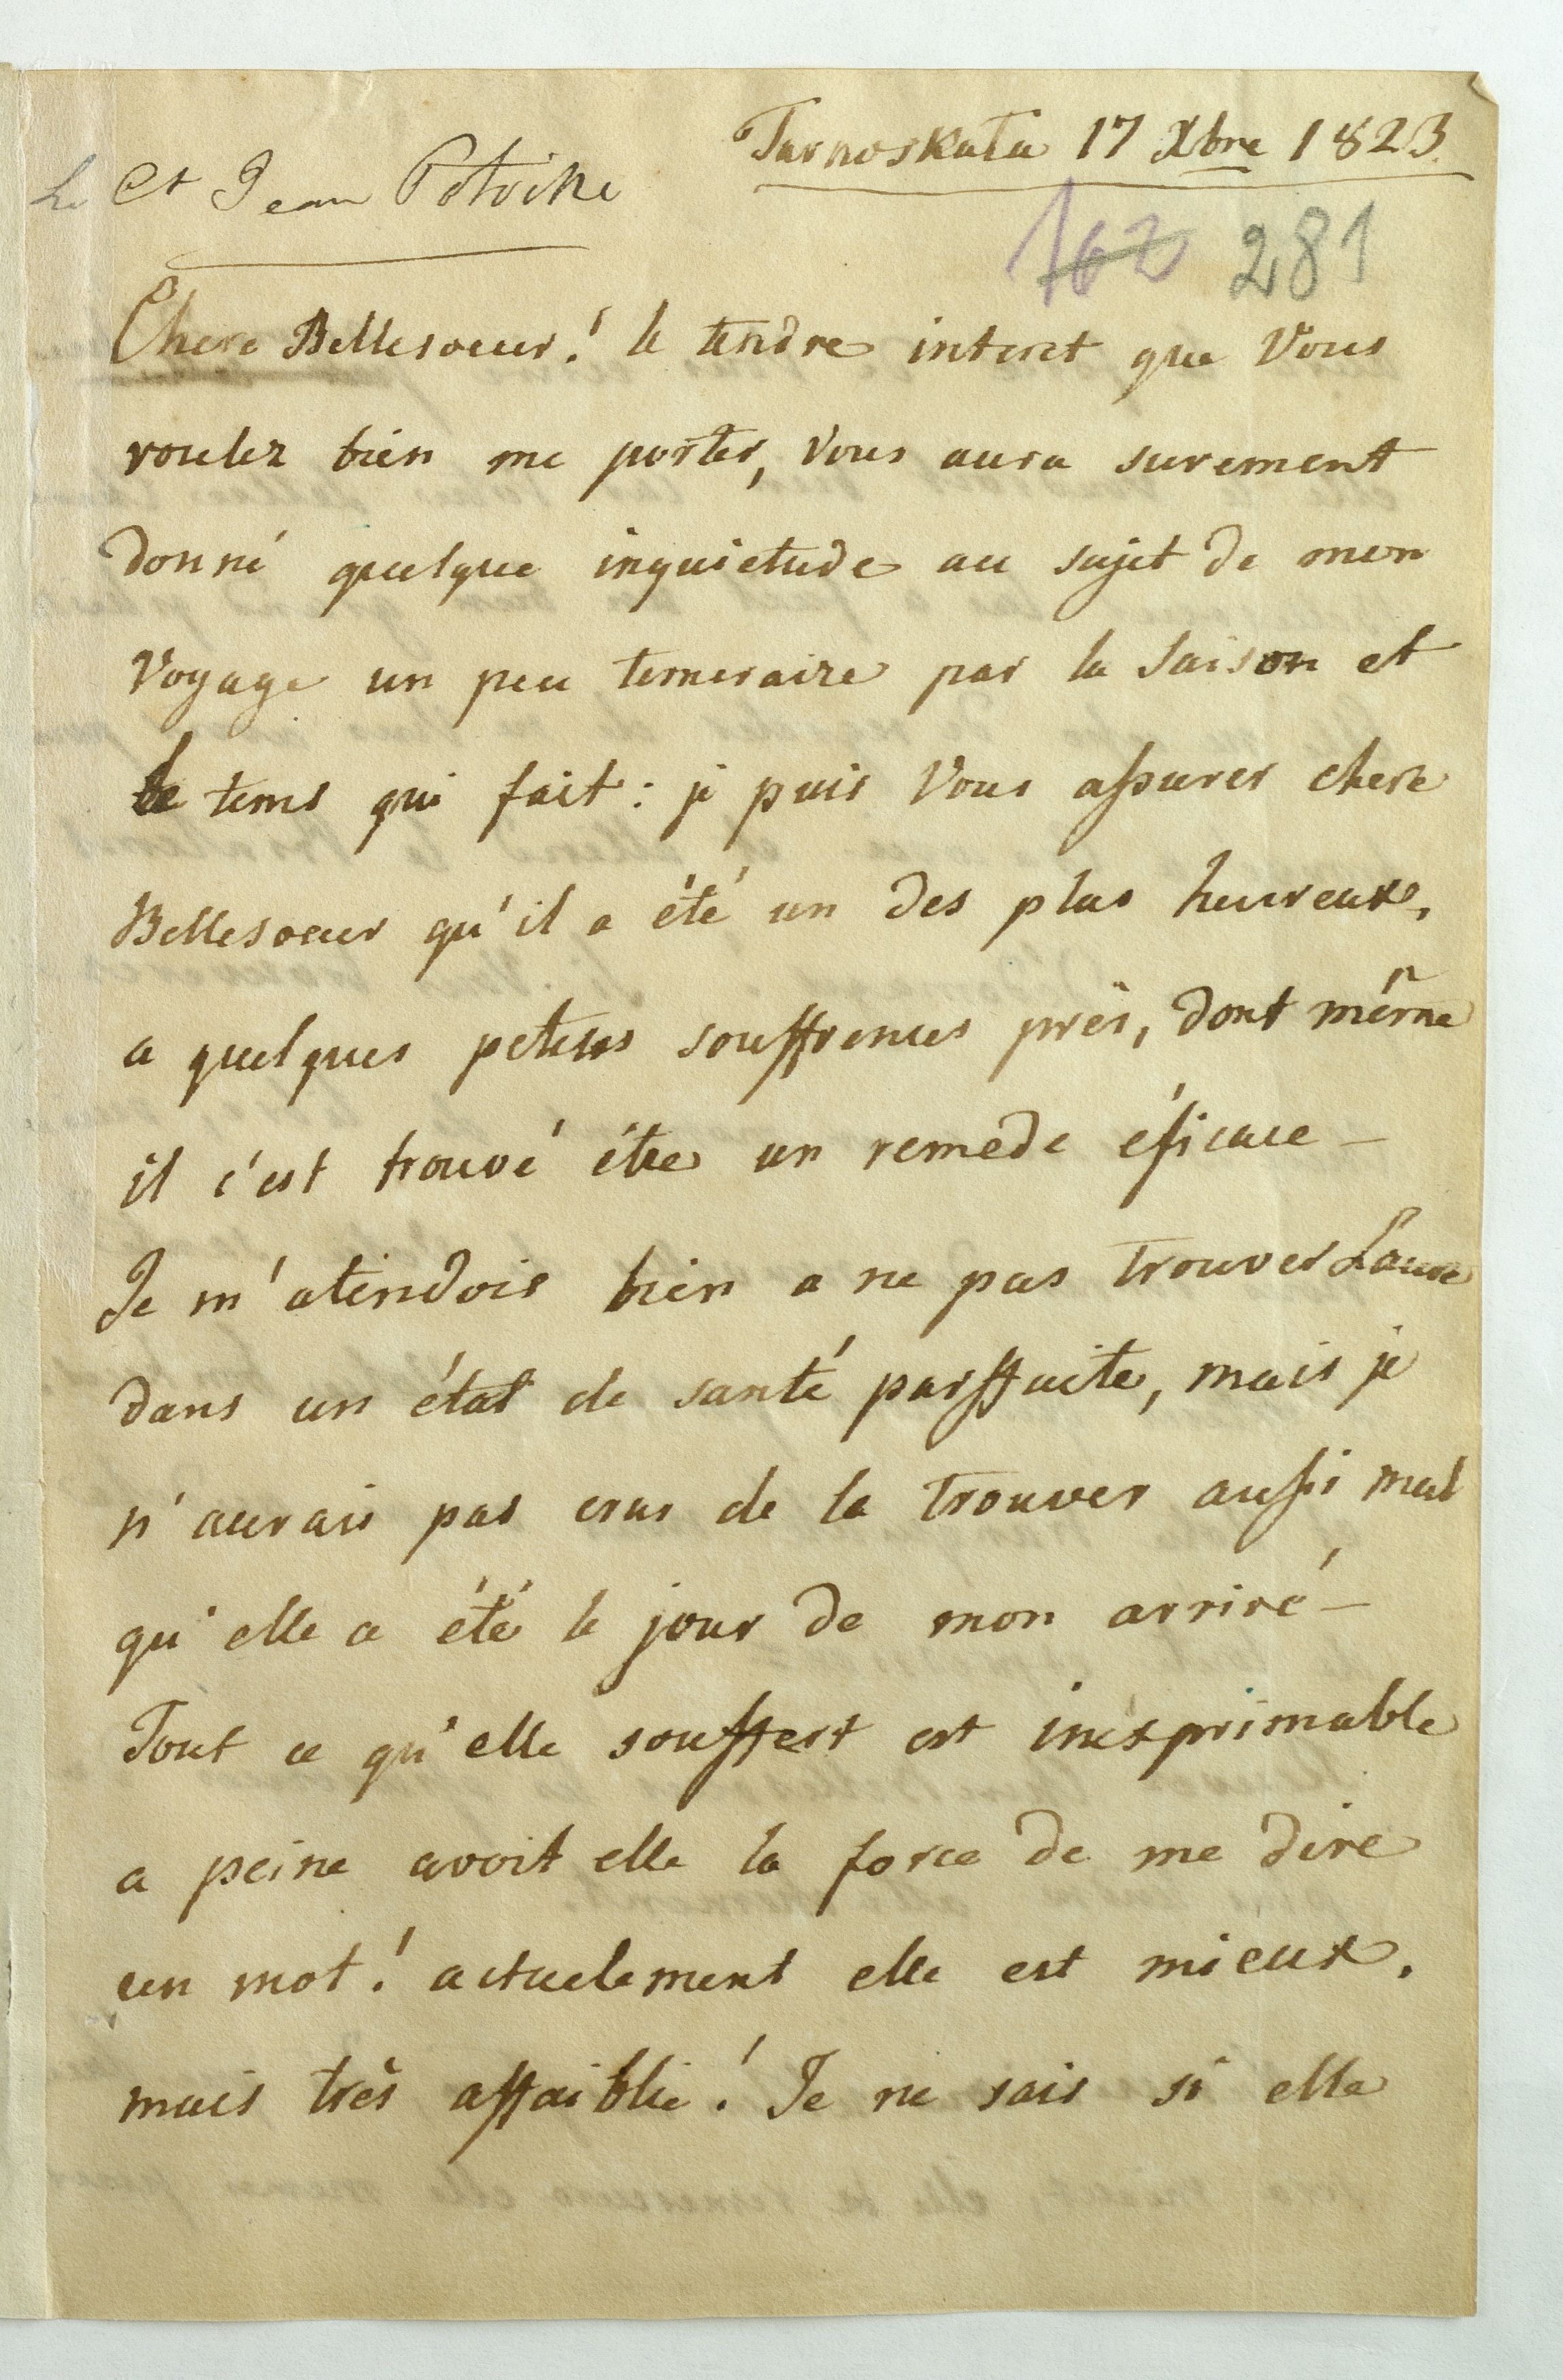 Tarnoskata 17 Xbre 1823.
Le Ct Jean Potoike
162 281
Chere Bellesoeur! le tendre interet que Vous
voulez bien me porter, Vous aura surement
donné quelque inquietude au sujet de mon
Voyage un peu temeraire par la saison et
le tems qui fait: je puis Vous assurer chere
Bellesoeur qu'il a été un des plus heureux,
a quelques petites souffrences près, dont même
il c'est trouvé étre un remede éficace —
Je m'atendois bien a ne pas trouver Laure
dans un état de santé parffaite, mais je
n'aurais pas crus de la trouver aussi mal
qu'elle a été le jour de mon arrivé —
Tout ce qu'elle souffert est inéxprimable
a peine avoit elle la force de me dire
un mot! actuelement elle est mieux,
mais très affaiblie! Je ne sais si elle